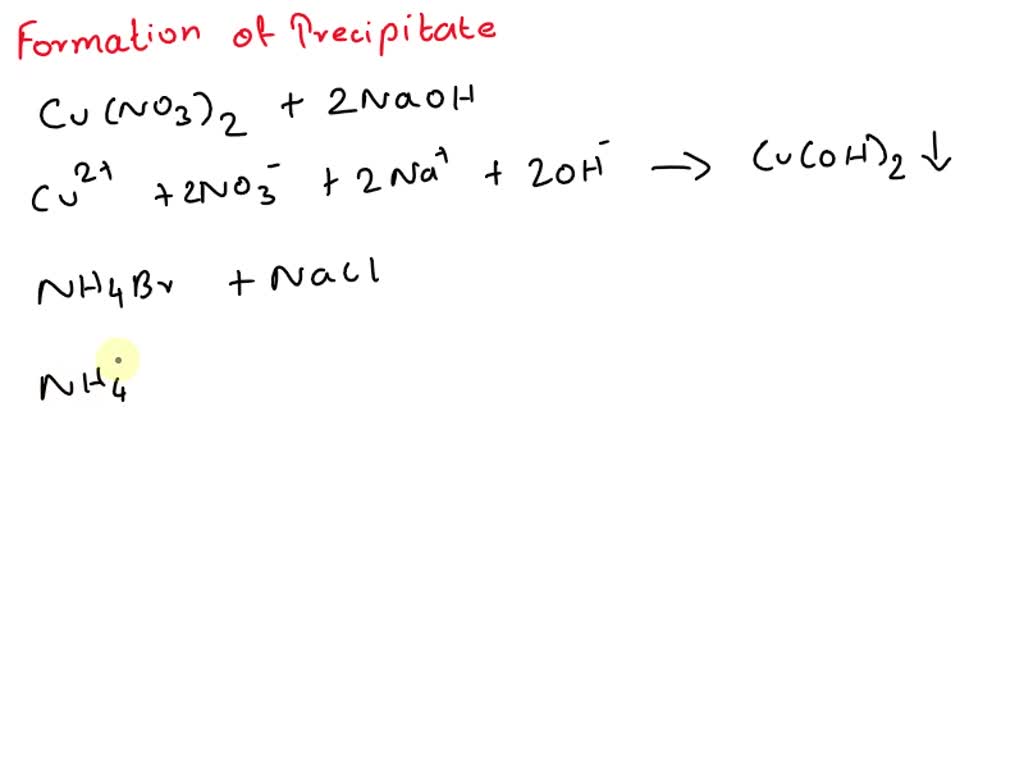 Formation of Precipitate
Cu(NO₃)₂ + 2NaOH
Cu²⁺ + 2NO₃⁻ + 2Na⁺ + 2OH⁻ → Cu(OH)₂ ↓
NH₄Br + NaCl
NH₄